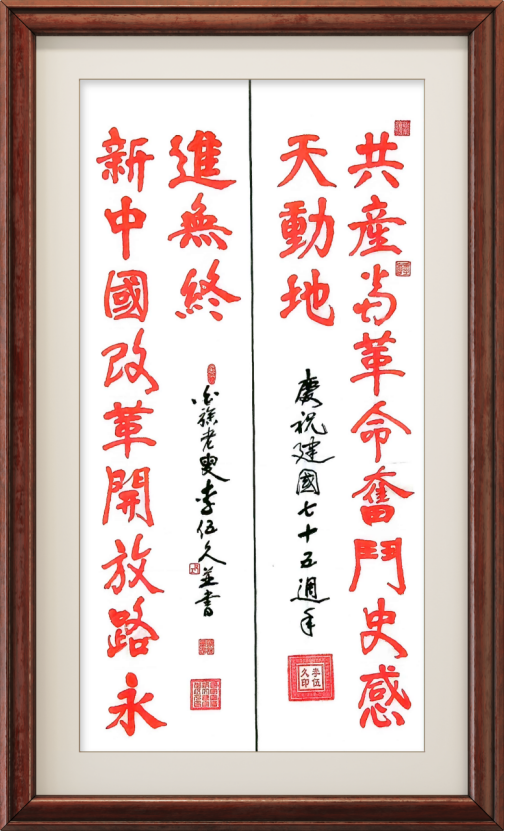 共產黨革命奮鬥史感
天動地
慶祝建國七十五週年
李伍久印
新中國改革開放路永
進無終
白族老叟李伍久並書